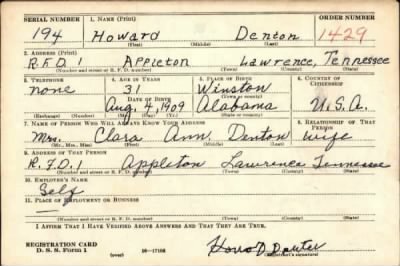 SERIAL NUMBER 1. NAME (Print) ORDER NUMBER
194 Howard Denton 1429
(First) (Middle) (Last)
2. ADDRESS (Print)
R.F.D. 1 Appleton Lawrence, Tennessee
(Number and street or R. F. D. number) (Town) (County) (State)
3. TELEPHONE 4. AGE IN YEARS 5. PLACE OF BIRTH 6. COUNTRY OF CITIZENSHIP
none 31 Winston
DATE OF BIRTH (Town or county)
Aug. 4, 1909 Alabama U.S.A.
(Exchange) (Number) (Mo.) (Day) (Yr.) (State or country)
7. NAME OF PERSON WHO WILL ALWAYS KNOW YOUR ADDRESS 8. RELATIONSHIP OF THAT PERSON
Mrs. Clara Ann Denton wife
(Mr., Mrs., Miss) (First) (Middle) (Last)
9. ADDRESS OF THAT PERSON
R.F.D. 1 Appleton Lawrence Tennessee
(Number and street or R. F. D. number) (Town) (County) (State)
10. EMPLOYER'S NAME
Self
11. PLACE OF EMPLOYMENT OR BUSINESS
—
(Number and street or R. F. D. number) (Town) (County) (State)
I AFFIRM THAT I HAVE VERIFIED ABOVE ANSWERS AND THAT THEY ARE TRUE.
REGISTRATION CARD
D. S. S. Form 1 (over) 16—17105
(Registrant's signature)